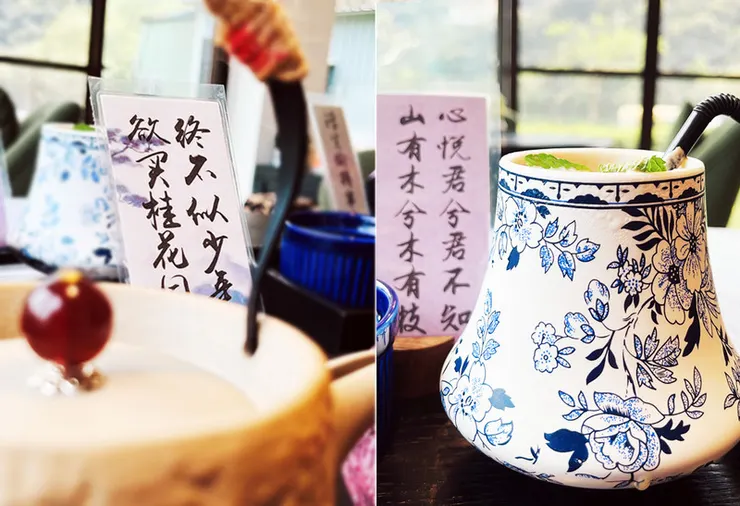 欲买桂花同
终不似少年
山有木兮木有枝
心悦君兮君不知